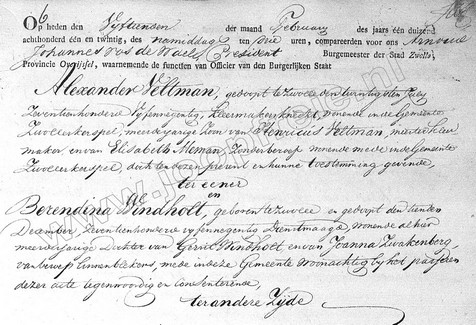 Op heden den Vyftienden der maand February des jaars één duizend
achthonderd één en twintig, des namiddags ten Drie uren, compareerden voor ons Arnoud
Johannes Vos de Wael, President Burgemeester der Stad Zwolle,
Provincie Overijssel, waarnemende de functien van Officier van den Burgerlijken Staat
Alexander Veltman, gedoopt te Zwolle den twintigsten July
Zeventienhonderd Vyfennegentig, Kleermakersknecht, wonende in de Gemeente
Zwollerkerspel, meerderjarige Zoon van Henricus Veltman, meester kleer
maker, en van Elisabeth Aleman, Zonder beroep wonende mede in de Gemeente
Zwollerkerspel, dezen present en hunne toestemming gevende
ter eener
en
Berendina Windholt, geboren te Zwolle en gedoopt den tienden
December, Zeventienhonderd vyfennegentig Dienstmaagd wonende alhier
meerderjarige Dochter van Gerrit Windholt en van Joanna Zwakenberg,
van beroep linnenblekers, mede in deze Gemeente woonachtig by het passeren
dezer acte tegenwoordig en consenterende,
ter andere Zyde